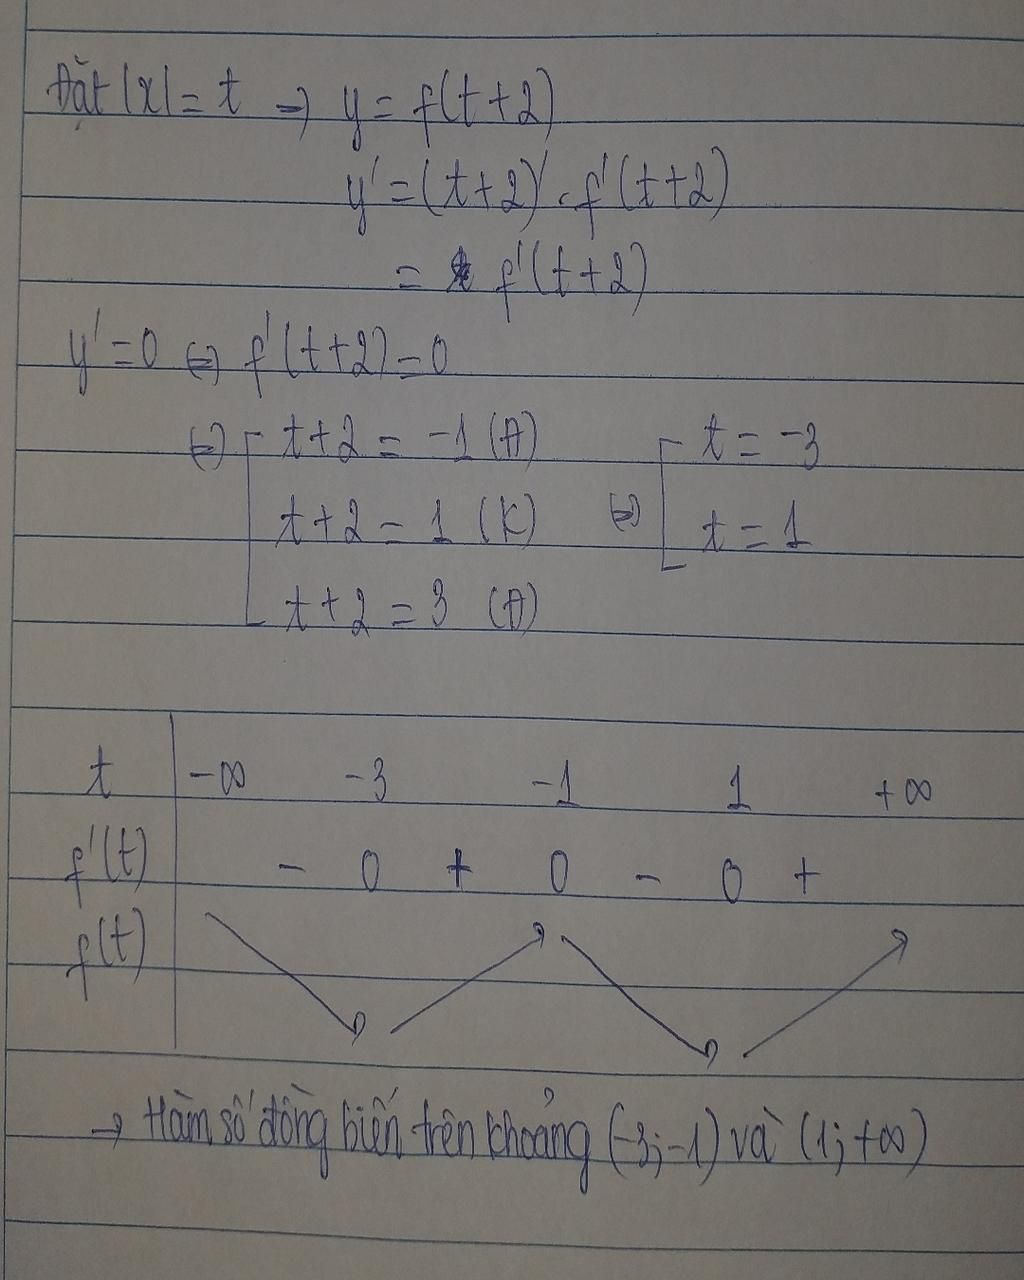 Đặt |x| = t → y = f(t+2)
y' = (t+2)' . f'(t+2)
= f'(t+2)
y' = 0 ⇔ f'(t+2) = 0
⇔ [ t+2 = -1 (A) ⇔ [ t = -3
t+2 = 1 (K) t = 1
t+2 = 3 (A)
t -∞ -3 -1 1 +∞
f'(t) - 0 + 0 - 0 +
f(t)
→ Hàm số đồng biến trên khoảng (-3;-1) và (1;+∞)